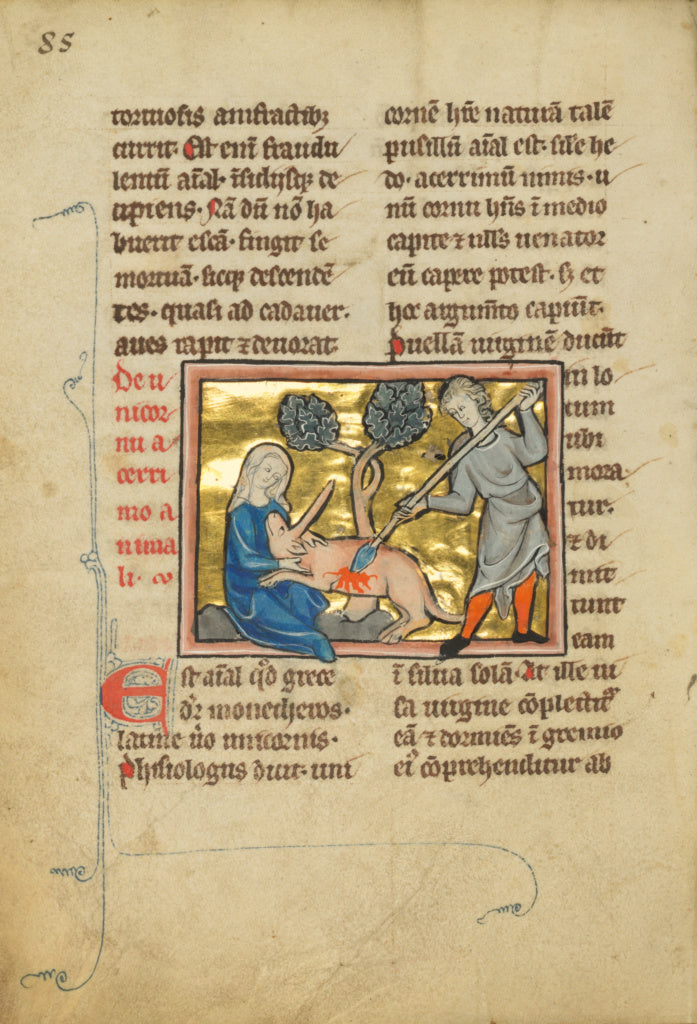 85
tortuosis amfractibꝫ
currit. Est enī fraudu
lentū aīal. īsidijsqꝫ de
cipiens. Nā dū nō ha
buerit escā. fingit se
mortuā. sicqꝫ descendē
tes. quasi ad cadauer.
aues rapit ⁊ deuorat.
De u
nicor
nu a
cerri
mo a
nima
li.
Est aīal qd̄ grece
dr̄ monecheros.
latine ūo unicornis.
Phisiologus dicit. uni
cornē hr̄e naturā talē
pusillū aīal est. sil'e he
do. acerrimū nimis. u
nū cornu hn̄s ī medio
capite ⁊ null's uenator
eū capere potest. sꝫ et
hoc argum̄to capiūt.
Puellā uirginē ducūt
in lo
cum
ubi
mora
tur.
⁊ di
mit
tunt
eam
ī silua solā. At ille ui
sa uirgine cōplectit᷑
eā ⁊ dormiēs ī gremio
ei᷒ cōprehenditur ab